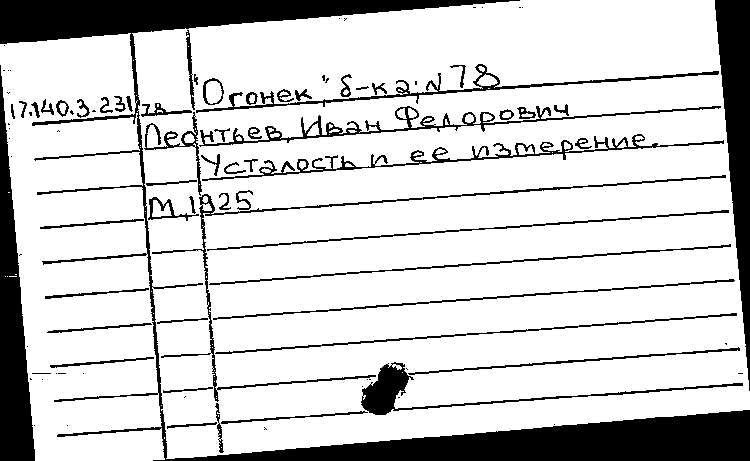 "Огонек", б-ка; N 78
17.140.3.231/78
Леонтьев, Иван Федорович
Усталость и ее измерение.
М, 1925